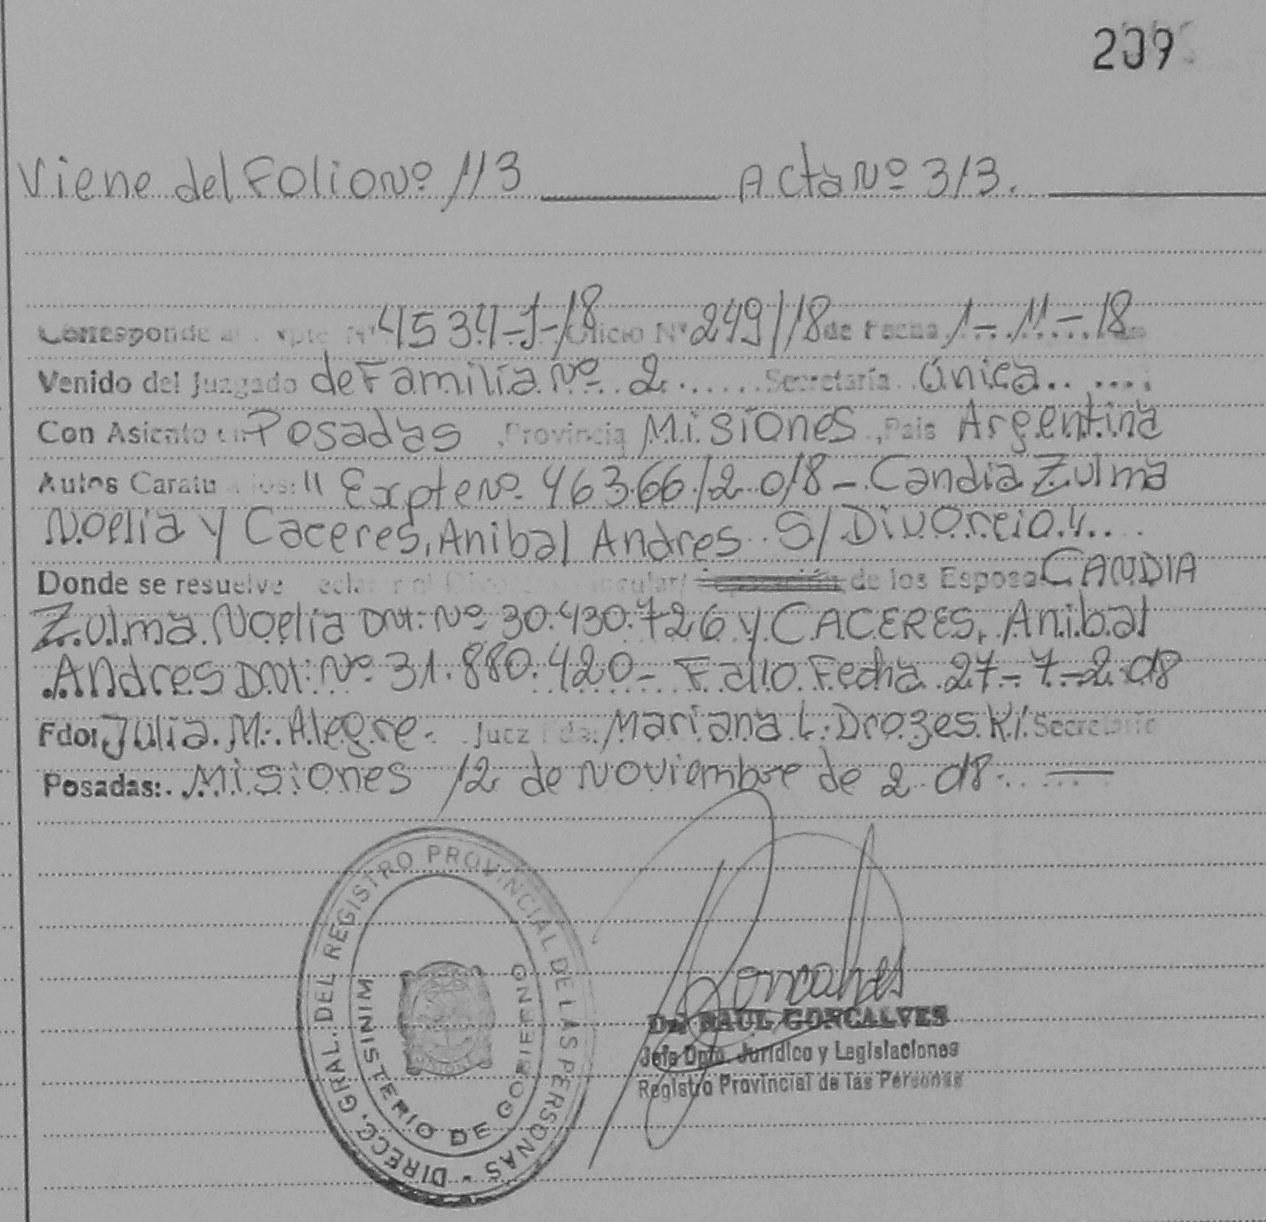 209
Viene del Folio Nº 113 Acta Nº 313.
Corresponde al Expte Nº 4534-J-18 Oficio Nº 249/18 de Fecha 1-11-18
Venido del Juzgado de Familia Nº 2 Secretaría Única
Con Asiento en Posadas, Provincia Misiones, País Argentina
Autos Caratulados: "Expte Nº 46366/2018 - Candia Zulma
Noelia y Caceres, Anibal Andres S/Divorcio"
Donde se resuelve Declarar el Divorcio Vincular/ Separación de los Esposos CANDIA
Zulma Noelia DNI: Nº 30.430.726 y CACERES, Anibal
Andres DNI: Nº 31.880.420 - Fallo Fecha 27-7-2018
Fdo: Julia M. Alegre. Juez Fdo: Mariana L. Drozeski Secretario
Posadas: Misiones 12 de Noviembre de 2018.
DIRECC. GRAL. DEL REGISTRO PROVINCIAL DE LAS PERSONAS -
MINISTERIO DE GOBIERNO
Goncalves
Dr. RAUL GONCALVES
Jefe Dpto. Jurídico y Legislaciones
Registro Provincial de las Personas